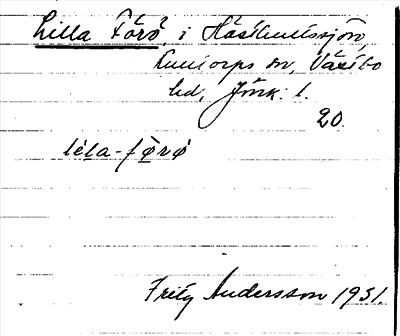 Lilla Färö, i Hästhultssjön,
Kulltorps sn, Västbo
hd, Jönk. l.
20.
lila-førø
Fritz Andersson 1931.